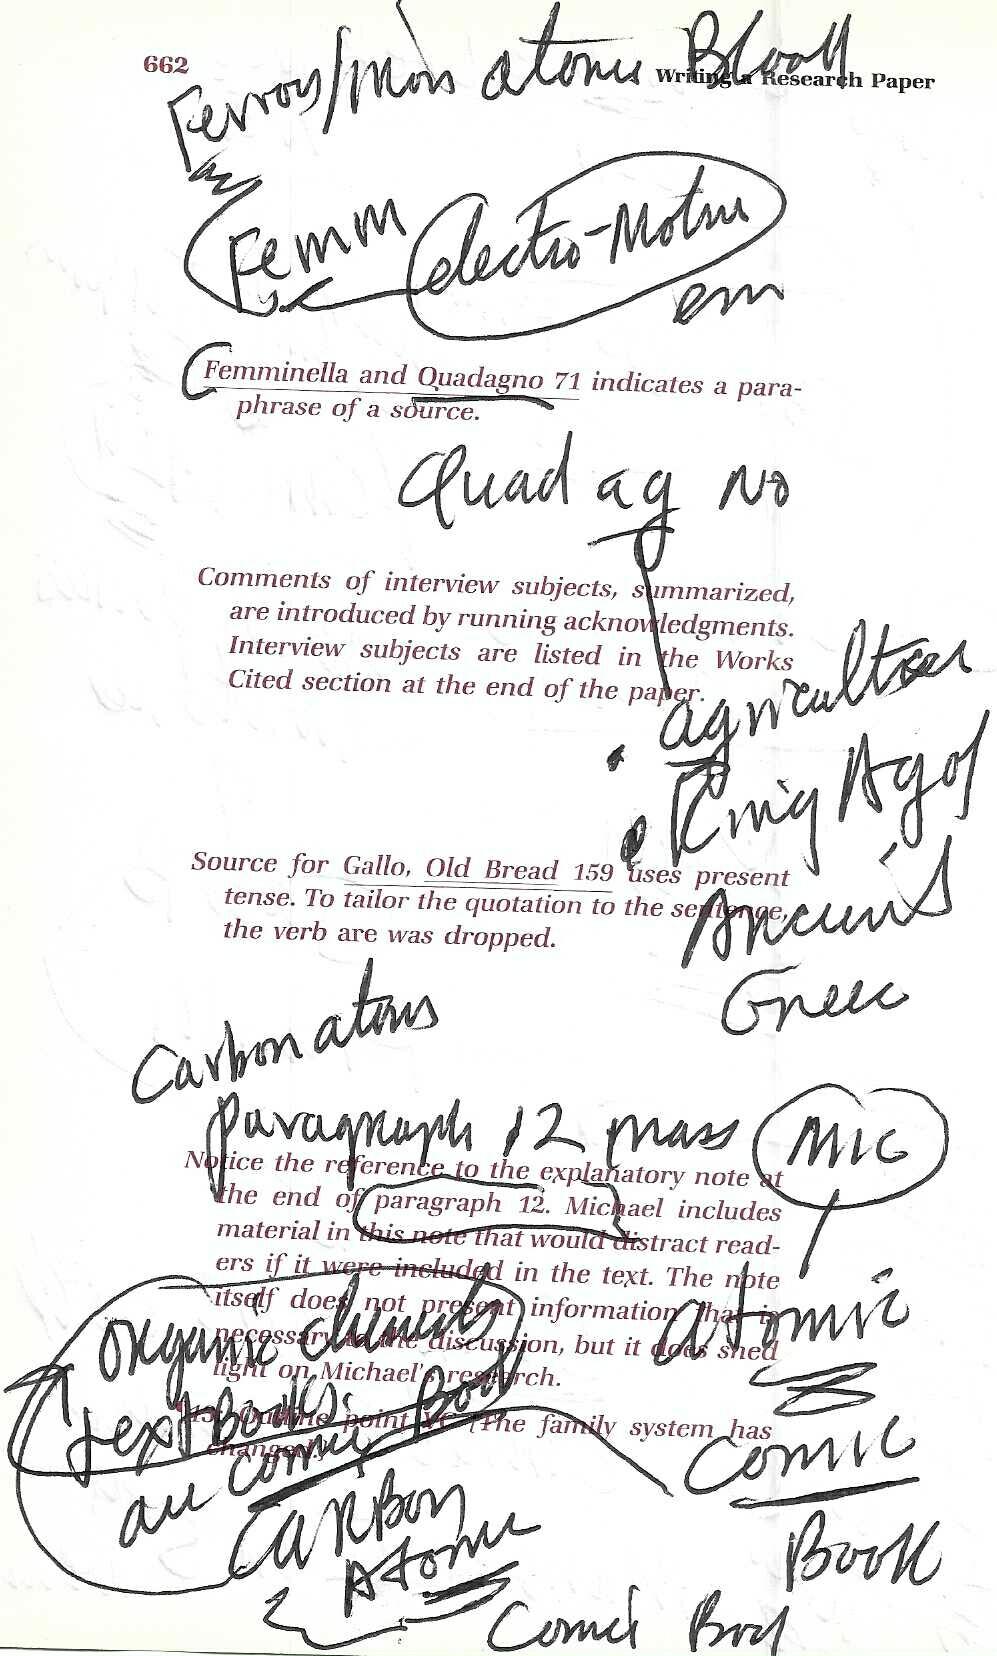 662
Writing a Research Paper
Femm electro-Motive
em
Femminella and Quadagno 71 indicates a para-
phrase of a source.
Quad ag No
Comments of interview subjects, summarized,
are introduced by running acknowledgments.
Interview subjects are listed in the Works
Cited section at the end of the paper.
King Ag of
Source for Gallo, Old Bread 159 uses present
tense. To tailor the quotation to the sentence,
the verb are was dropped.
Carbon atoms
paragraph 12 mass MIC
Notice the reference to the explanatory note at
the end of paragraph 12. Michael includes
material in this note that would distract read-
ers if it were included in the text. The note
itself does not present information that is
necessary to the discussion, but it does shed
light on Michael's research.
atomic
organic
15. Outline point VC (The family system has
changed.)
comic
Carbon
Atomic
Book